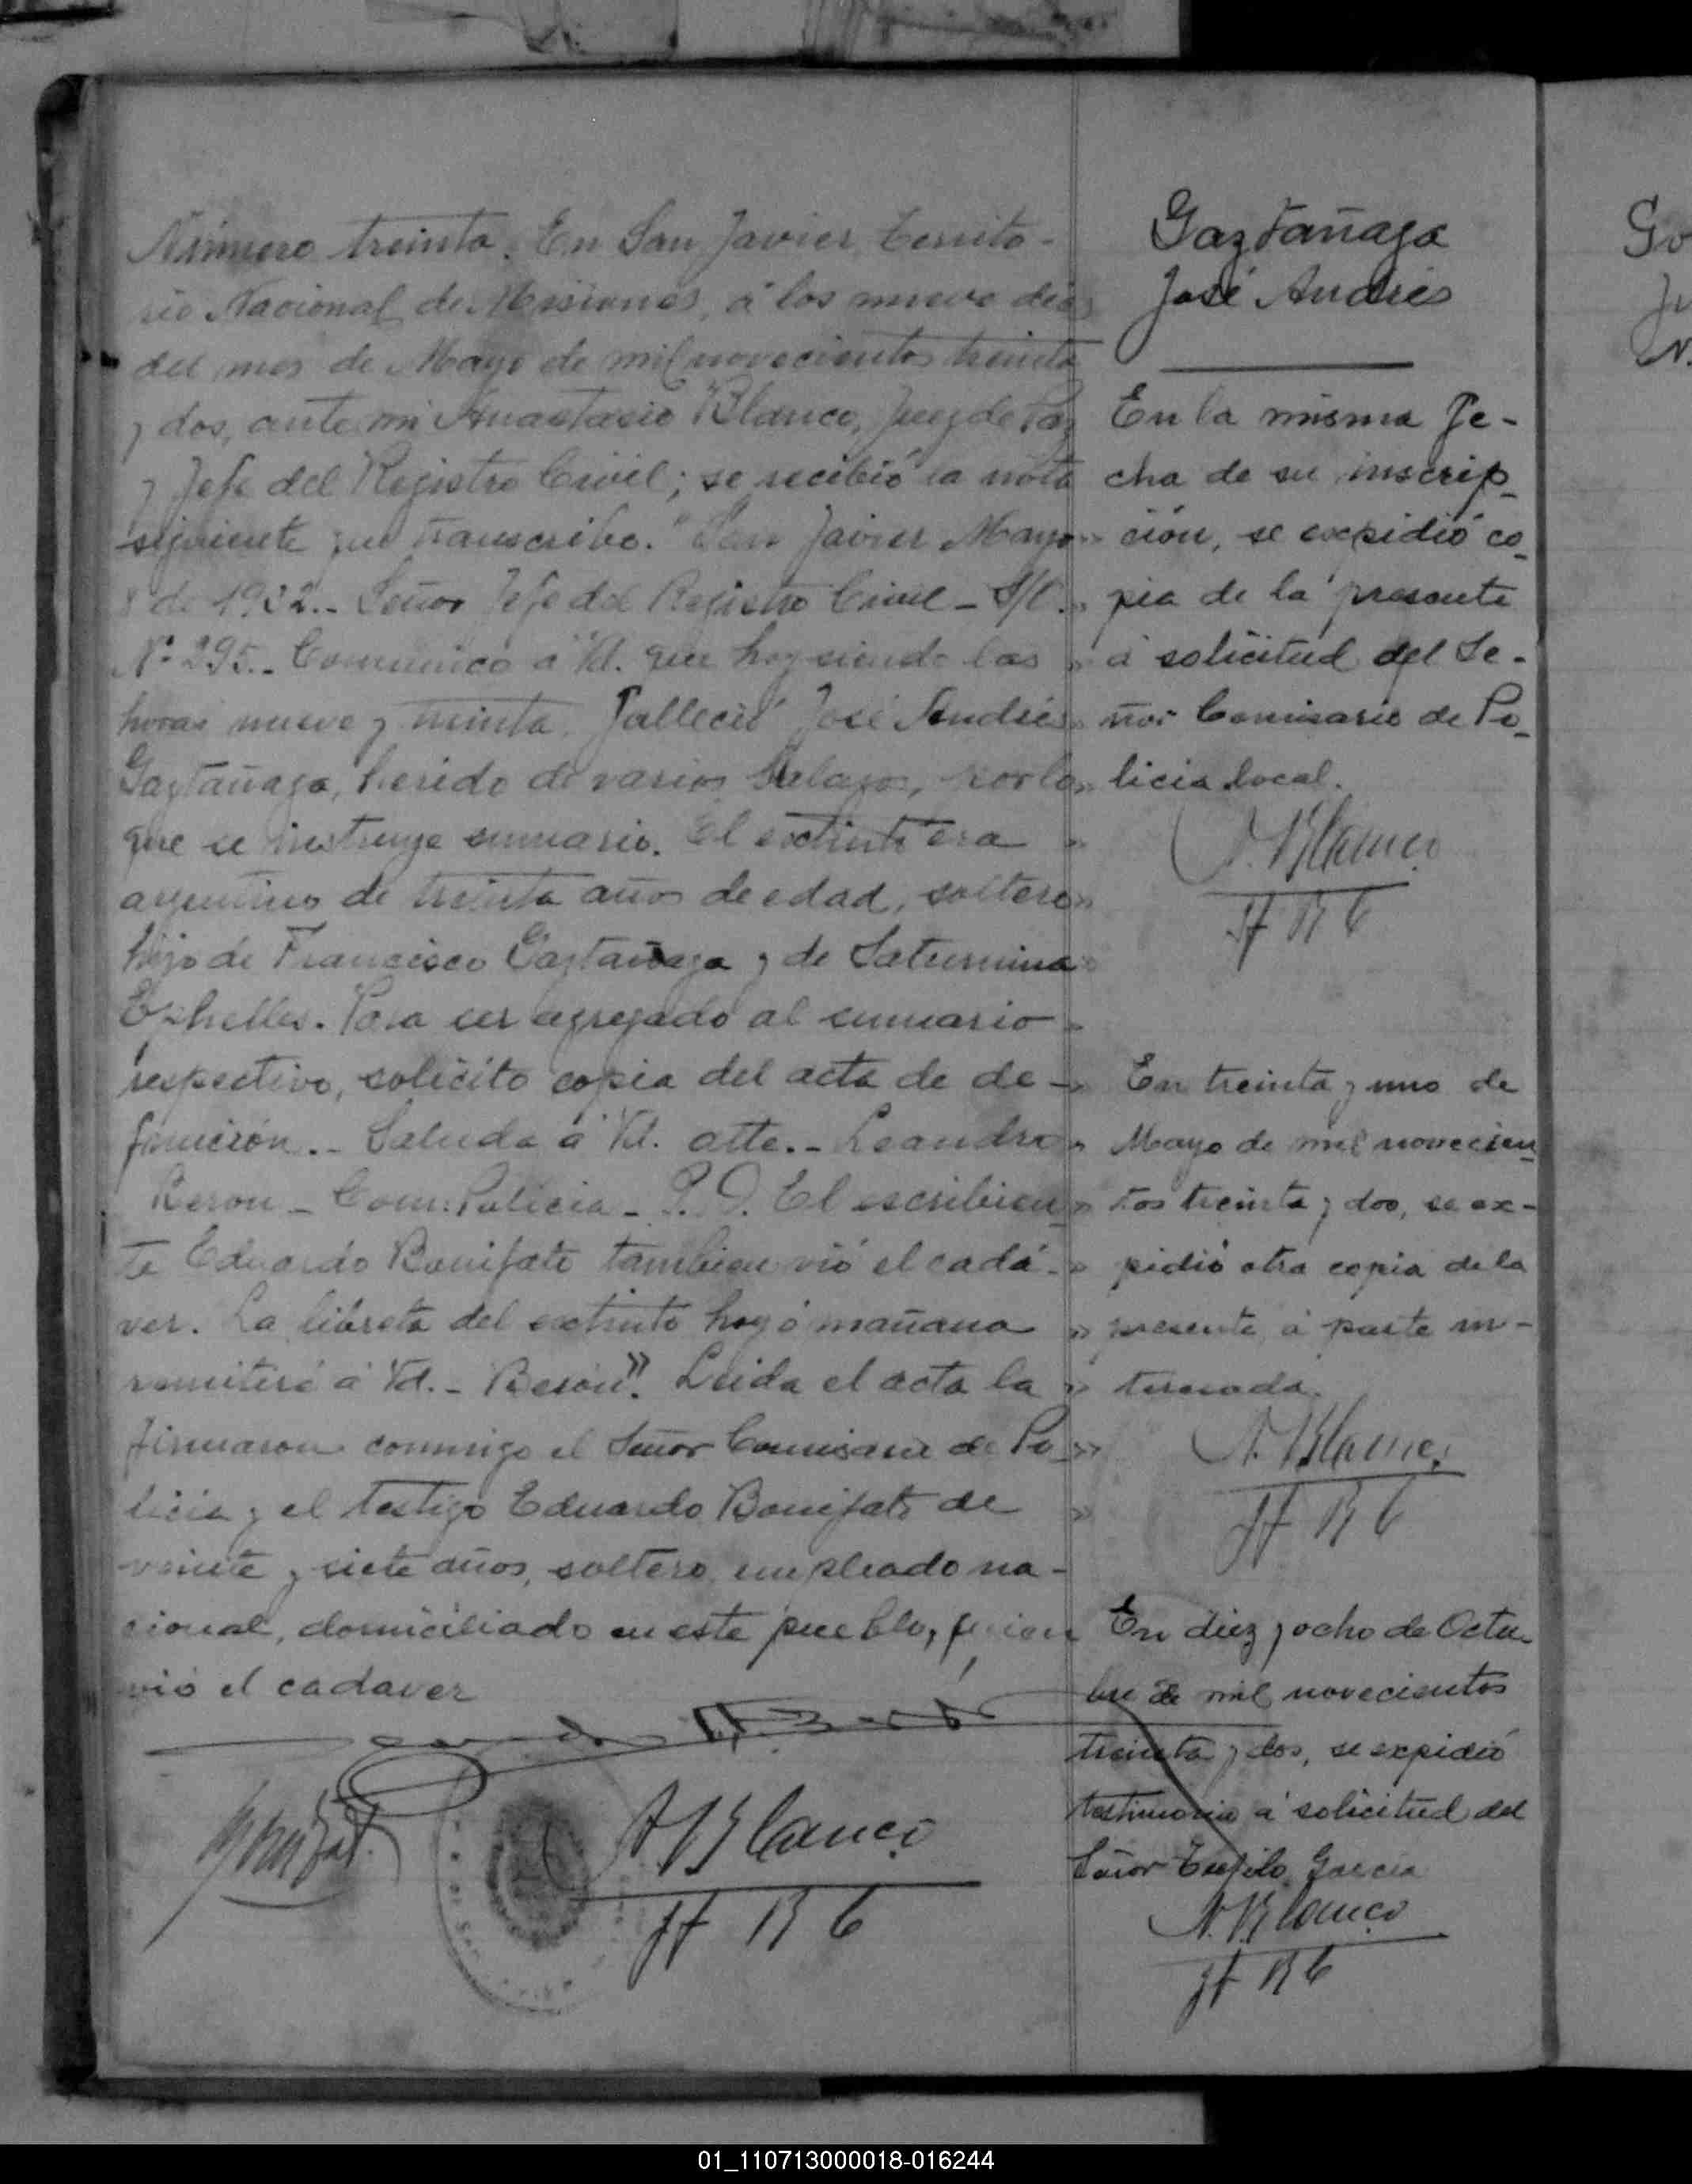 Número treinta. En San Javier, Territo-
rio Nacional de Misiones, á los nueve dias
del mes de Mayo de mil novecientos treinta
y dos, ante mi Anastacio Blanco, Juez de Paz
y Jefe del Registro Civil; se recibió la nota
siguiente que transcribo. "San Javier Mayo
8 de 1932.- Señor Jefe del Registro Civil - S/C.
Nº 295.- Comunico á Vd. que hoy siendo las
horas nueve y treinta, falleció José Andrés
Gaztañaga, herido de varios balazos, por lo
que se instruye sumario. El extinto era
argentino de treinta años de edad, soltero
hijo de Francisco Gaztañaga y de Saturnina
Para ser agregado al sumario
respectivo, solicito copia del acta de de-
función.- Saluda á Vd. atte.- Leandro
Beron - Com: Policia - P.D. El escribien-
te Eduardo Bonifato tambien vió el cadá-
ver. La libreta del extinto hoy ó mañana
remitiré á Vd. - Beron". Leida el acta la
firmaron conmigo el Señor Comisario de Po-
licia y el testigo Eduardo Bonifato de
veinte y siete años, soltero, empleado na-
cional, domiciliado en este pueblo, quien
vió el cadaver
A. Blanco
Jf R C
Gaztañaga
José Andrés
En la misma fe-
cha de su inscrip-
ción, se expidió co-
pia de la presente
á solicitud del Se-
ñor Comisario de Po-
licia local.
A. Blanco
Jf R C
En treinta y uno de
Mayo de mil novecien-
tos treinta y dos, se ex-
pidió otra copia de la
presente, á parte in-
teresada.
A. Blanco
Jf R C
En diez y ocho de Octu-
bre de mil novecientos
treinta y dos, se expidió
testimonio á solicitud del
Señor García
A. Blanco
Jf R C
01_110713000018-016244